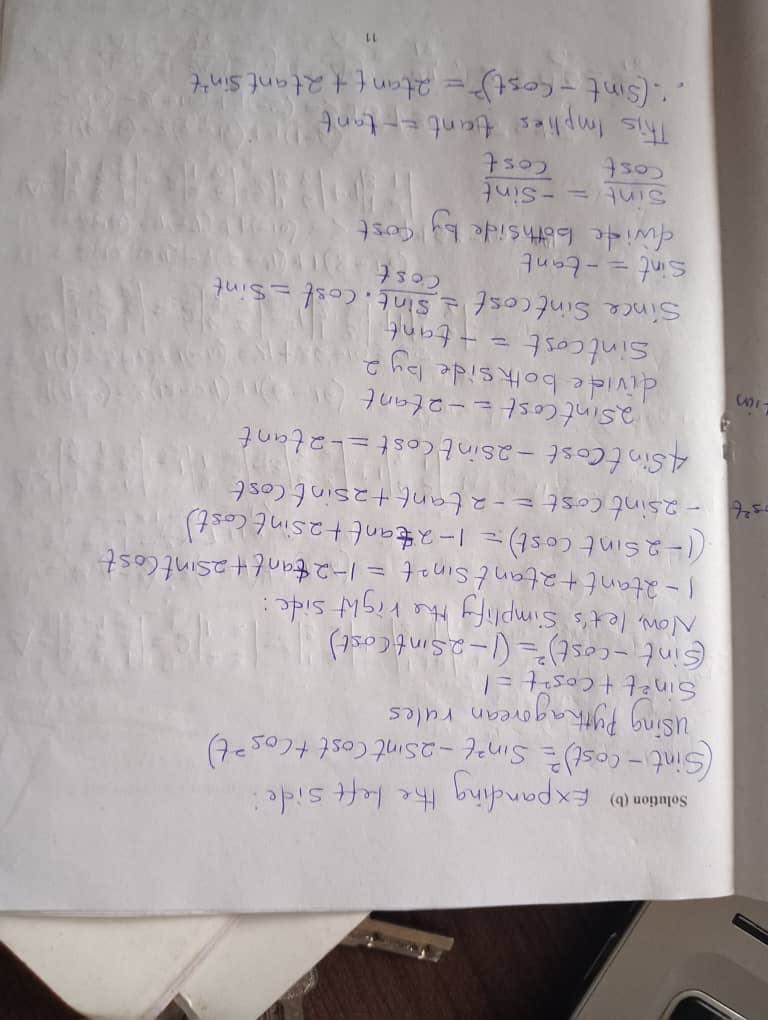 Solution (b) Expanding the left side:
(Sint - Cost)² = Sin²t - 2Sint Cost + Cos²t)
using Pythagorean rules
Sin²t + Cos²t = 1
(Sint - Cost)² = (1 - 2Sint Cost)
Now, let's Simplify the right side:
1 - 2tant + 2tant Sin²t = 1 - 2tant + 2Sint Cost
(1 - 2Sint Cost) = 1 - 2tant + 2sint Cost)
os²t
- 2sint Cost = - 2tant + 2sint Cost
4Sint Cost - 2Sint Cost = - 2tant
2Sint Cost = - 2tant
divide both side by 2
Sint cost = - tant
Since Sint cost = Sint/Cost . Cost = Sint
Sint = - tant
divide bothside by Cost
Sint/Cost = - Sint/Cost
This Implies tant = - tant
∴ (Sint - Cost)² = 2tant + 2tant Sin²t
11